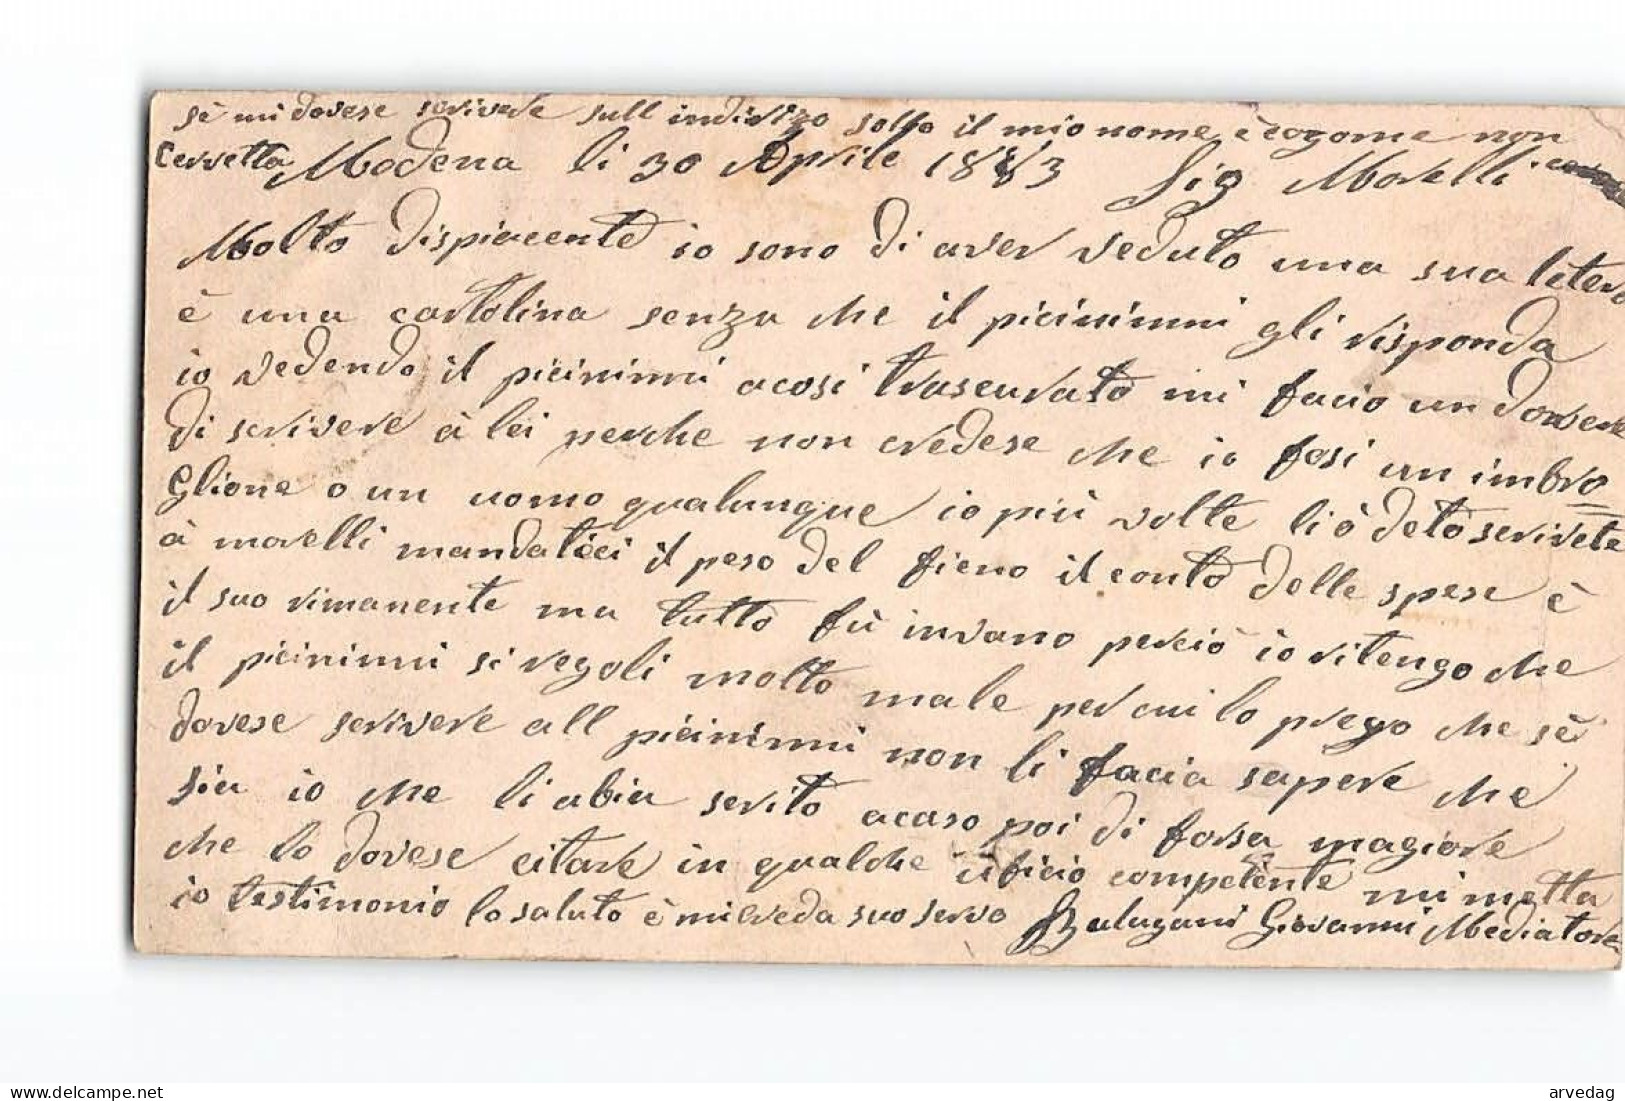 sè mi dovese scrivere sull indirizzo sotto il mio nome è cogome non
Cervetta Modena li 30 Aprile 1883 Sig Morelli
Molto dispiacente io sono di aver veduto una sua letera
è una cartolina senza che il picininni gli risponda
io vedendo il picininni acosi trascurato mi facio un dovere
di scrivere à lei perche non credese che io fosi un imbro
glione o un uomo qualunque io più volte li ò detto scrivete
à morelli mandatteci il peso del fieno il conto delle spese è
il suo rimanente ma tutto fù invano perciò io ritengo che
il picininni si regoli molto male per cui lo prego che sè
dovese scrivere all picininni non li facia sapere che
sia io che li abia scrito acaso poi di forsa magiore
che lo dovese citare in qualche uficio competente mi metta
io testimonio lo saluto è mi creda suo servo Balugani Giovanni Mediatore
delcampe.net
arvedag